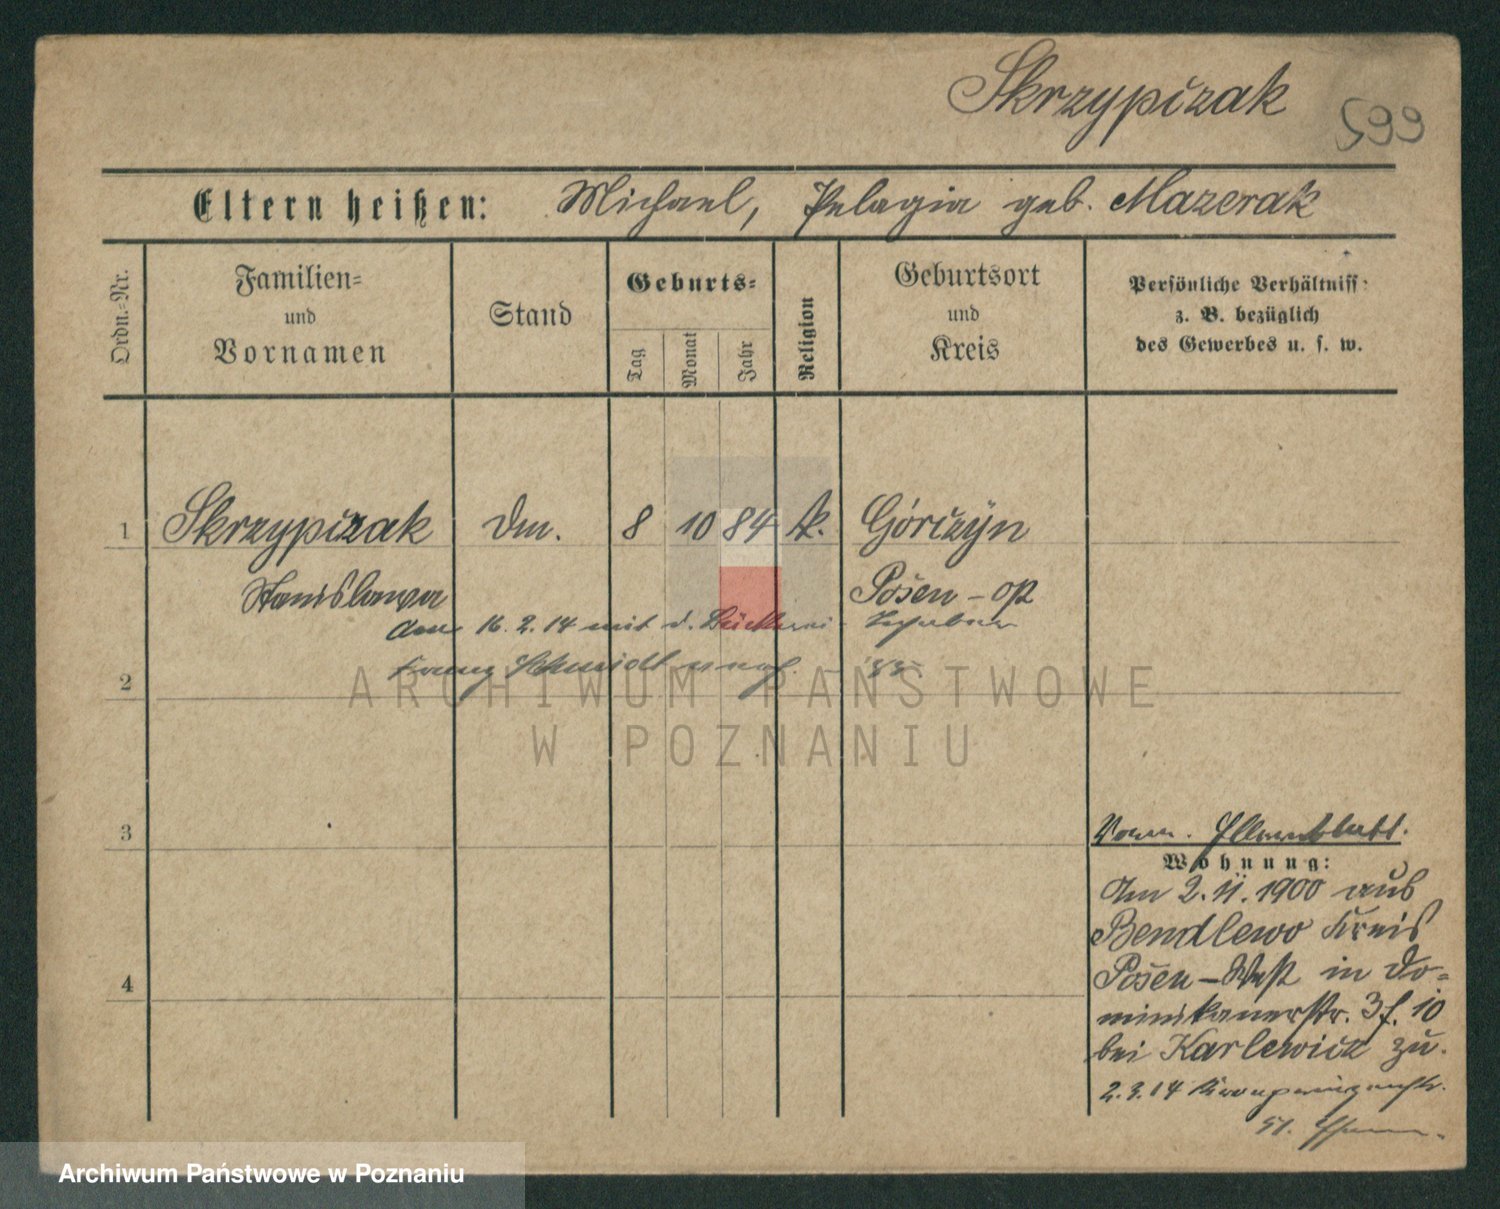 Skrzypczak
599
Eltern heißen: Michael, Pelagia geb. Mazerak
Ordn.-Nr.
Familien-
und
Vornamen
Stand
Geburts-
Tag
Monat
Jahr
Religion
Geburtsort
und
Kreis
Persönliche Verhältniss
z. B. bezüglich
des Gewerbes u. s. w.
1 Skrzypczak Dm. 8 10 84 k. Górczyn
Stanislawa Posen - Op
16. 2. 14 mit d.
Franz Schmidt
2
3
4
Wohnung:
Am 2. 11. 1900 aus
Bendlewo Kreis
Posen - West in Do-
minikanerstr. 3 f. 10
bei Karlewicz zu.
2. 3. 14
ARCHIWUM PAŃSTWOWE
W POZNANIU
Archiwum Państwowe w Poznaniu